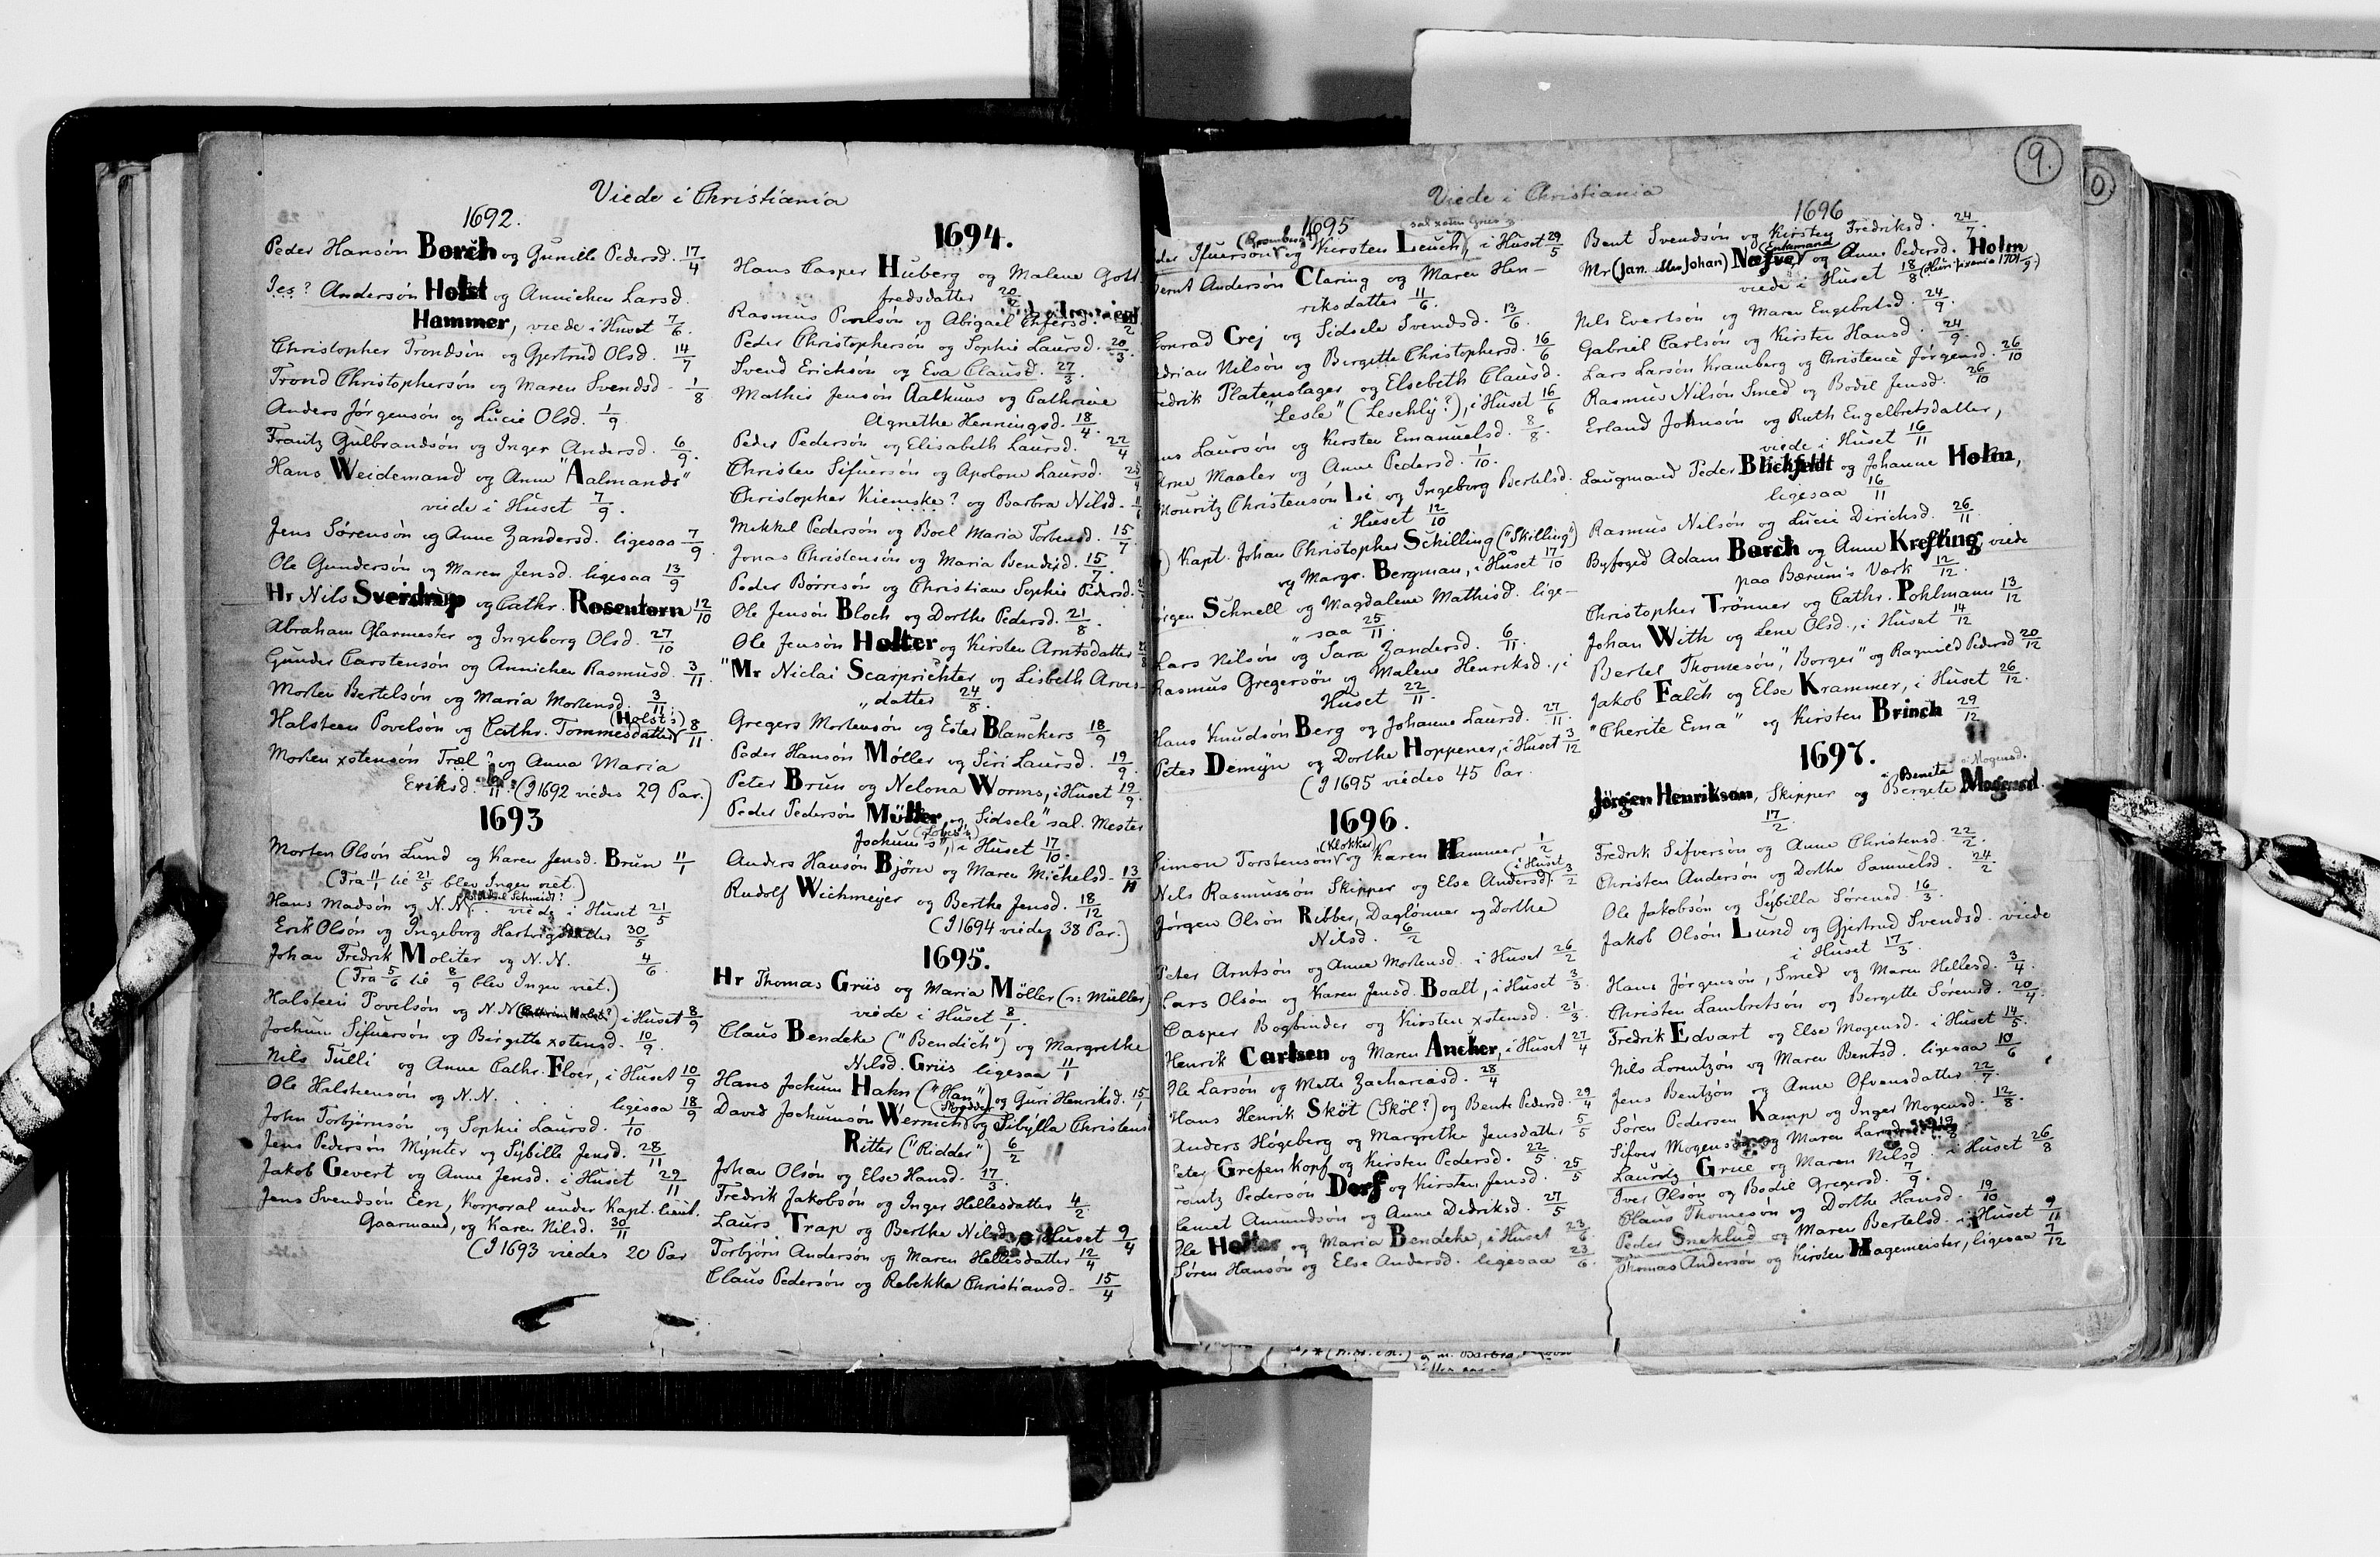 Viede i Christiania
1692.
Peder Hansøn Borch og Gunille Pedersd. 17/4
Jes? Andersøn Holst og Annichen Larsd.
Hammer, viede i Huset 7/6.
Christopher Trondsøn og Gjertrud Olsd. 14/7
Trond Christophersøn og Maren Svendsd. 1/8
Anders Jørgensøn og Lucie Olsd. 1/9
Frantz Gulbrandsøn og Inger Andersd. 6/9.
Hans Weidemand og Anne "Aalmands"
viede i Huset 7/9.
Jens Sørensøn og Anne Zandersd. ligesaa 7/9
Ole Gundersøn og Maren Jensd. ligesaa 13/9
Hr Nils Sverdrup og Cathr. Rosentorn 12/10
Abraham Glarmester og Ingeborg Olsd. 27/10
Gunder Carstensøn og Annichen Rasmusd. 3/11.
Morten Bertelsøn og Maria Mortensd. 3/11
Halsteen Povelsøn og Cathr. Tommesdatter (Holst's) 8/11.
Morten xstensøn Træl? og Anna Maria
Eriksd. (I 1692 viedes 29 Par.)
1693
Morten Olsøn Lund og Karen Jensd. Brun 11/1
(Fra 11/1 til 21/5 blev Ingen viet.)
Hans Madsøn og N.N. viede i Huset 21/5
Erik Olsøn og Ingeborg Hartvigsdatter 30/5
Johan Fredrik Moliter og N.N. 4/6.
(Fra 5/6 til 8/9 blev Ingen viet.)
Halsteen Povelsøn og N.N. (Cathrin Holst?) i Huset 8/9
Jochum Sifuersøn og Birgitte xstensd. 10/9.
Nils Tulli og Anne Cathr. Floer, i Huset 10/9
Ole Halstensøn og N.N. ligesaa 18/9
John Torbjørnsøn og Sophie Laursd. 1/10
Jens Pedersøn Mynter og Sybille Jensd. 28/11
Jakob Gevert og Anne Jensd. i Huset 29/11
Jens Svendsøn Een, Korporal under Kapt. lieut.
Gaarmand, og Karen Nilsd. 30/11
(I 1693 viedes 20 Par
1694.
Hans Casper Huberg og Malene Gott
fredsdatter 20/2
Rasmus Povelsøn og Abigael
Peder Christophersøn og Sophie Laursd. 20/3.
Svend Erichsøn og Eva Clausd. 27/3.
Mathis Jensøn Aalkuus og Cathrine
Agnethe Henningsd. 18/4.
Peder Pedersøn og Elisabeth Laursd. 22/4
Christen Sifuersøn og Apolone Laursd.
Christopher Kiemske? og Barbra Nilsd.
Mikkel Pedersøn og Boel Maria Torbensd. 15/7
Jonas Christensøn og Maria Bendixd. 15/7.
Peder Børresøn og Christiane Sophie Pedersd.
Ole Jensøn Bloch og Dorthe Pedersd. 21/8.
Ole Jensøn Holter og Kirsten Arntsdatter
"Mr Niclai Scarprichter og Lisbeth Arves-
datter 24/8.
Gregers Mortensøn og Ester Blanckers 18/9
Peder Hansøn Møller og Siri Laursd. 19/9.
Peter Brun og Nelona Worms, i Huset 19/9.
Peder Pedersøn Müller og Sidsele "sal. Mester
Jochum's", i Huset 17/10.
Anders Hansøn Björn og Maren Michelsd. 13/11
Rudolf Wichmeyer og Berthe Jensd. 18/12
(I 1694 viedes 38 Par.)
1695.
Hr Thomas Grüs og Maria Möller (o: Müller)
viede i Huset 8/1.
Claus Bendeke ("Bendich") og Margrethe
Nilsd. Grüs ligesaa 11/1
Hans Jochum Hahn ("Han") og Guri Henriksd. 15/1
David Jochumsøn Wernich og Sibylla Christens
Ritter ("Ridder") 6/2
Johan Olsøn og Else Hansd. 17/3.
Fredrik Jakobsøn og Inger Hellesdatter 4/2
Laurs Trap og Berthe Nilsd. i Huset 9/4
Torbjørn Andersøn og Maren Hellesdatter 12/4
Claus Pedersøn og Rebekka Christiansd. 15/4
9.
Viede i Christiania
1695
og Kirsten Leuch, i Huset 29/5
Bernt Andersøn Claring og Maren Hen-
riksdatter 11/6.
Conrad Crej og Sidsele Svendsd. 13/6.
Adrian Nilsøn og Bergette Christophersd. 16/6
Fredrik Platenslager og Elsebeth Clausd.
"Lesle" (Leschly?), i Huset 16/6
Laursøn og Kirsten Emanuelsd. 8/8.
Arne Maaler og Anne Pedersd. 1/10.
Mouritz Christensøn Li og Ingeborg Bertelsd.
i Huset 12/10
Kapt. Johan Christopher Schilling ("Skilling")
og Margr. Bergman, i Huset 17/10
Jørgen Schnell og Magdalene Mathisd. lige-
saa 25/11.
Lars Nilsøn og Sara Zandersd. 6/11.
Rasmus Gregersøn og Malene Henriksd., i
Huset 22/11.
Hans Knudsøn Berg og Johanne Laursd. 27/11.
Peter Demyn og Dorthe Hoppener, i Huset 3/12
(I 1695 viedes 45 Par.
1696.
Simon Torstensøn (Klokker) og Karen Hammer 1/2
Nils Rasmussøn Skipper og Else Andersd. i Huset 3/2
Jørgen Olsøn Ribber, Daglønner og Dorthe
Nilsd. 6/2
Peter Arntsøn og Anne Mortensd. i Huset 26/2
Lars Olsøn og Karen Jensd. Boalt, i Huset 3/3
Casper Bogbinder og Kirsten xstensd. 21/3.
Henrik Carlsen og Maren Ancker, i Huset 27/4
Ole Larsøn og Mette Zachariasd. 28/4
Hans Henrik Sköt (Sköl?) og Bente Pedersd. 29/4
Anders Högeberg og Margrethe Jensdatter 5/5
Peter Grefenkopf og Kirsten Pedersd. 22/5.
Frantz Pedersøn Dorf og Kirsten Jensd. 25/5
Amundsøn og Anne Dedriksd. 27/5
Ole Holter og Maria Bendeke, i Huset 23/6
Søren Hansøn og Else Andersd. ligesaa 23/6.
1696
Bent Svendsøn og Kirsten Fredriksd. 24/7.
Mr (Jan. eller Johan) Næfve (Enkemand) og Anne Pedersd. Holm
viede i Huset 18/8
Nils Evertsøn og Maren Engebretsd. 24/9.
Gabriel Carlsøn og Kirsten Hansd. 24/9.
Lars Larsøn Kramberg og Christence Jørgensd. 26/10
Rasmus Nilsøn Smed og Bodil Jensd. 26/10
Erland Johnsøn og Ruth Engelbretsdatter,
viede i Huset 16/11
Laugmand Peder Blichfeldt og Johanne Holm,
ligesaa 16/11
Rasmus Nilsøn og Lucie Dirichsd. 26/11.
Byfoged Adam Borch og Anne Krefting viede
paa Bærum's Værk 12/12.
Christopher Trönner og Cathr. Pohlmann 13/12
Johan With og Lene Olsd., i Huset 14/12
Bertel Thomesøn, "Borger" og Ragnild Pedersd. 20/12
Jakob Falch og Else Krammer, i Huset 26/12.
"Cherite Ema" og Kirsten Brinch 29/12
1697.
Jørgen Henriksøn, Skipper og Bergete Mogensd.
17/2.
Fredrik Sifversøn og Anne Christensd. 22/2.
Christen Andersøn og Dorthe Samuelsd. 24/2
Ole Jakobsøn og Sybilla Sørensd. 16/3.
Jakob Olsøn Lund og Gjertrud Svendsd. viede
i Huset 17/3.
Hans Jørgensøn, Smed og Maren Hellesd. 3/4.
Christen Lambretsøn og Bergette Sørensd. 20/4.
Fredrik Edvart og Else Mogensd. i Huset 14/5.
Nils Lorentzøn og Maren Bentsd. ligesaa 10/6
Jens Bentzøn og Anne Ofvensdatter 22/7.
Søren Pedersen Kamp og Inger Mogensd. 12/8.
Sifver Mogensøn og Maren
Lauritz Grue og Maren Nilsd. i Huset 26/8
Iver Olsøn og Bodil Gregersd. 7/9.
Claus Thomesøn og Dorthe Hansd. 19/10
Peder Sneklud og Maren Bertelsd. i Huset 9/11
Thomas Andersøn og Kirsten Hagemeister, ligesaa 7/12